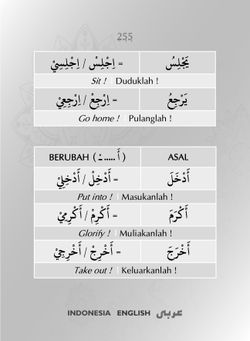 255
يَجْلِسُ = اِجْلِسْ / اِجْلِسِيْ
Sit ! | Duduklah !
يَرْجِعُ = اِرْجِعْ / اِرْجِعِيْ
Go home ! | Pulanglah !
ASAL BERUBAH ( أَ ..... ـْ )
أَدْخَلَ = أَدْخِلْ / أَدْخِلِيْ
Put into ! | Masukanlah !
أَكْرَمَ = أَكْرِمْ / أَكْرِمِيْ
Glorify ! | Muliakanlah !
أَخْرَجَ = أَخْرِجْ / أَخْرِجِيْ
Take out ! | Keluarkanlah !
INDONESIA ENGLISH عربي